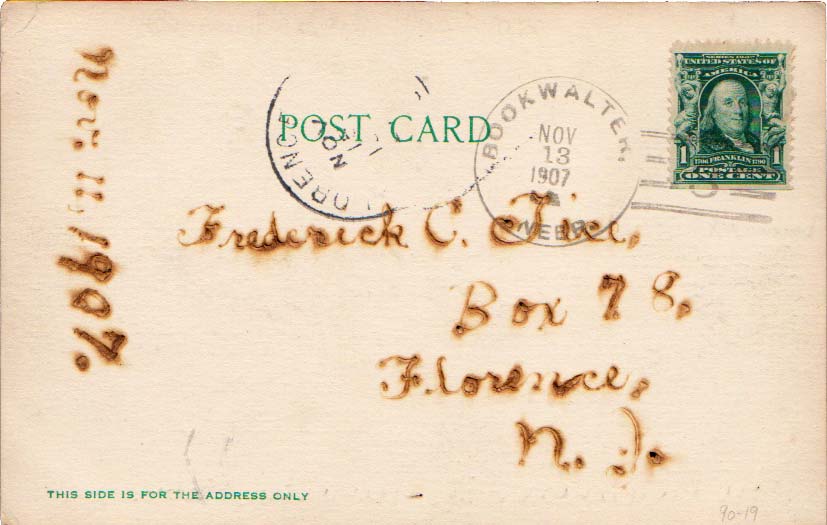 POST CARD
BOOKWALTER,
NOV
13
1907
NEBR.
SERIES 1902
UNITED STATES OF
AMERICA
1 1706 FRANKLIN 1790 1
POSTAGE
ONE CENT
FLORENC
NOV
Nov. 11, 1907.
Frederick C. Tice,
Box 78,
Florence,
N. J.
THIS SIDE IS FOR THE ADDRESS ONLY
90-19